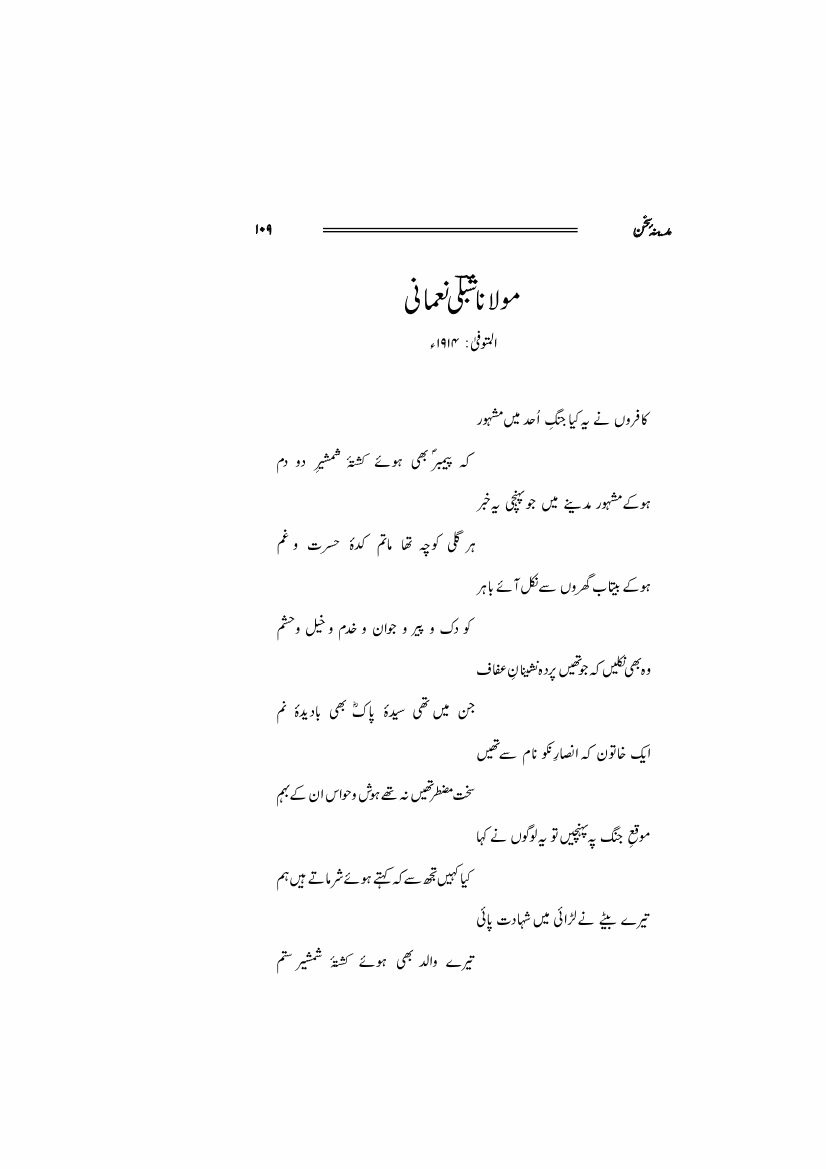 مدینۂ سخن ۱۰۹
مولانا شبلی نعمانی
المتوفیٰ: ۱۹۱۴ء
کافروں نے یہ کیا جنگِ اُحد میں مشہور
کہ پیمبرؐ بھی ہوئے کشتۂ شمشیرِ دو دم
ہوکے مشہور مدینے میں جو پہنچی یہ خبر
ہر گلی کوچہ تھا ماتم کدۂ حسرت و غم
ہوکے بیتاب گھروں سے نکل آئے باہر
کودک و پیر و جوان و خدم و خیل و حشم
وہ بھی نکلیں کہ جو تھیں پردہ نشینانِ عفاف
جن میں تھی سیدۂ پاکؓ بھی بادیدۂ نم
ایک خاتون کہ انصارِ نکو نام سے تھیں
سخت مضطر تھیں نہ تھے ہوش و حواس ان کے بہم
موقعِ جنگ پہ پہنچیں تو یہ لوگوں نے کہا
کیا کہیں تجھ سے کہ کہتے ہوئے شرماتے ہیں ہم
تیرے بیٹے نے لڑائی میں شہادت پائی
تیرے والد بھی ہوئے کشتۂ شمشیر ستم